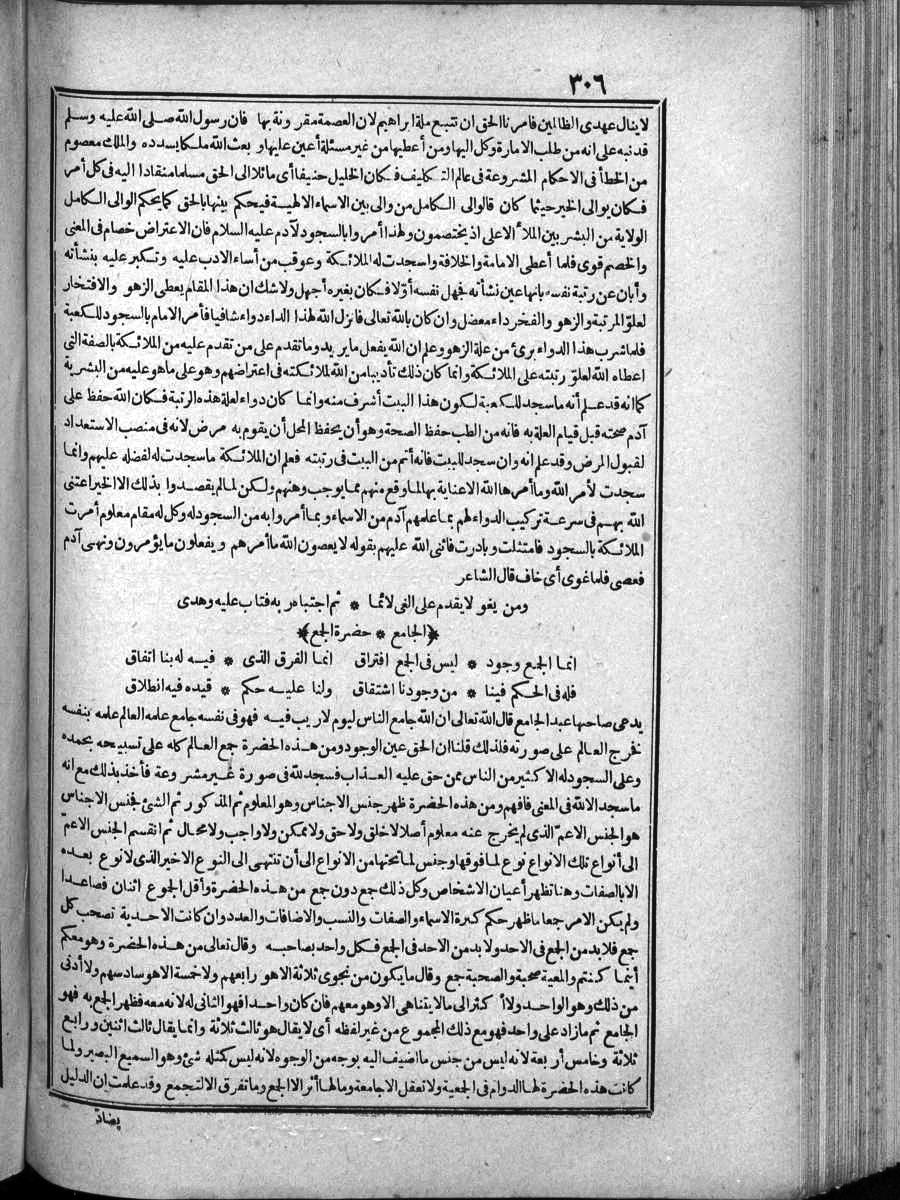 ٣٠٦
لا ينال عهدى الظالمين فامرنا الحق ان نتبع ملة ابراهيم لان العصمة مقرونة بها فان رسول الله صلى الله عليه وسلم
قد نبه على انه من طلب الامارة وكل اليها ومن أعطيها من غير مسئلة أعين عليها وبعث الله ملكا يسدده والملك معصوم
من الخطأ فى الاحكام المشروعة فى عالم التكليف فكان الخليل حنيفا أى مائلا الى الحق مسلما منقادا اليه فى كل أمر
فكان يوالى الخير حيثما كان فالوالى الكامل من والى بين الاسماء الالهية فيحكم بينها بالحق كما يحكم الوالى الكامل
الولاية من البشر بين الملأ الاعلى اذ يختصمون ولهذا أمروا بالسجود لآدم عليه السلام فان الاعتراض خصام فى المعنى
والخصم قوى فلما أعطى الامامة والخلافة واسجدت له الملائكة وعوقب من أساء الادب عليه وتكبر عليه بنشأته
وأبان عن رتبة نفسه بانها عين نشأته فجهل نفسه أوّلا فكان بغيره أجهل ولا شك ان هذا المقام يعطى الزهو والافتخار
لعلوّ المرتبة والزهو والفخر داء معضل وان كان بالله تعالى فانزل الله لهذا الداء دواء شافيا فأمر الامام بالسجود للكعبة
فلما شرب هذا الدواء برئ من علة الزهو وعلم ان الله يفعل ما يريد وما تقدم على من تقدم عليه من الملائكة بالصفة التى
اعطاه الله لعلوّ رتبته على الملائكة وانما كان ذلك تأديبا من الله لملائكته فى اعتراضهم وهو على ما هو عليه من البشرية
كما انه قد علم أنه ما سجد للكعبة لكون هذا البيت أشرف منه وانما كان دواء لعلة هذه الرتبة فكان الله حفظ على
آدم صحته قبل قيام العلة به فانه من الطب حفظ الصحة وهو أن يحفظ المحل أن يقوم به مرض لانه فى منصب الاستعداد
لقبول المرض وقد علم انه وان سجد للبيت فانه أتم من البيت فى رتبته فعلم ان الملائكة ما سجدت له لفضله عليهم وانما
سجدت لأمر الله وما أمرها الله الا عناية بها لما وقع منهم مما يوجب وهنهم ولكن لما لم يقصدوا بذلك الا الخير اعتنى
الله بهم فى سرعة تركيب الدواء لهم بما علمهم آدم من الاسماء وبما أمروا به من السجود له وكل له مقام معلوم أمرت
الملائكة بالسجود فامتثلت وبادرت فاثنى الله عليهم بقوله لا يعصون الله ما أمرهم ويفعلون ما يؤمرون ونهى آدم
فعصى فلما غوى أى خاف قال الشاعر
ومن يغو لا يعدم على الغى لائما * ثم اجتباه ربه فتاب عليه وهدى
﴿الجامع * حضرة الجمع﴾
انما الجمع وجود * ليس فى الجمع افتراق انما الفرق الذى * فيه له بنا اتفاق
فله فى الحكم فينا * من وجودنا اشتقاق ولنا عليه حكم * قيده فيه انطلاق
يدعى صاحبها عبد الجامع قال الله تعالى ان الله جامع الناس ليوم لا ريب فيه فهو فى نفسه جامع علمه العالم علمه بنفسه
فخرج العالم على صورته فلذلك قلنا ان الحق عين الوجود ومن هذه الحضرة جمع العالم كله على تسبيحه بحمده
وعلى السجود له الا كثير من الناس ممن حق عليه العذاب فسجد لله فى صورة غير مشروعة فأخذ بذلك مع انه
ما سجد الا لله فى المعنى فافهم ومن هذه الحضرة ظهر جنس الاجناس وهو المعلوم ثم المذكور ثم الشئ فجنس الاجناس
هو الجنس الاعمّ الذى لم يخرج عنه معلوم أصلا لا خلق ولا حق ولا ممكن ولا واجب ولا محال ثم انقسم الجنس الاعمّ
الى أنواع تلك الانواع نوع لما فوقها وجنس لما تحتها من الانواع الى أن تنتهى الى النوع الاخير الذى لا نوع بعده
الا بالصفات وهنا تظهر أعيان الاشخاص وكل ذلك جمع دون جمع من هذه الحضرة وأقل الجموع اثنان فصاعدا
ولم يكن الامر جمعا ما ظهر حكم كثرة الاسماء والصفات والنسب والاضافات والعدد وان كانت الاحدية تصحب كل
جمع فلا بد من الجمع فى الاحد ولا بد من الاحد فى الجمع فكل واحد بصاحبه وقال تعالى من هذه الحضرة وهو معكم
أينما كنتم والمعية صحبة والصحبة جمع وقال ما يكون من نجوى ثلاثة الا هو رابعهم ولا خمسة الا هو سادسهم ولا أدنى
من ذلك وهو الواحد ولا أكثر الى ما لا يتناهى الا وهو معهم فان كان واحدا فهو الثانى له لانه معه فظهر الجمع به فهو
الجامع ثم ما زاد على واحد فهو مع ذلك المجموع من غير لفظه أى لا يقال هو ثالث ثلاثة وانما يقال ثالث اثنين ورابع
ثلاثة وخامس أربعة لانه ليس من جنس ما اضيف اليه بوجه من الوجوه لانه ليس كمثله شئ وهو السميع البصير ولما
كانت هذه الحضرة لها الدوام فى الجمعية ولا تعقل الا جامعة وما لها أثر الا الجمع وما تفرق الا لتجمع وقد علمت ان الدليل
يضادّ